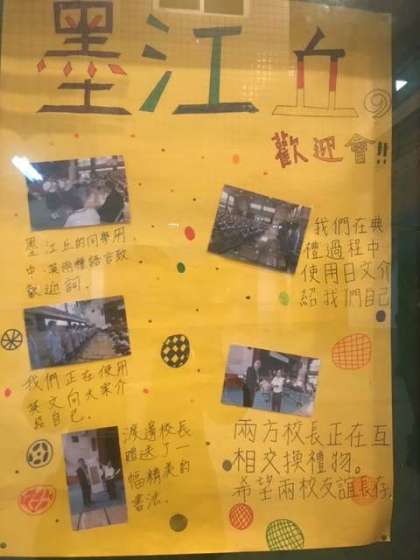 墨江丘の
歡迎會!!
墨江丘的同學用
中、英兩種語言致
歡迎詞.
我們在典
禮過程中,
使用日文介
紹我們自己
我們正在使用
英文向大家介
紹自己.
渡邊校長
贈送了一
幅精美的
書法.
兩方校長正在互
相交換禮物。
希望兩校友誼長存.